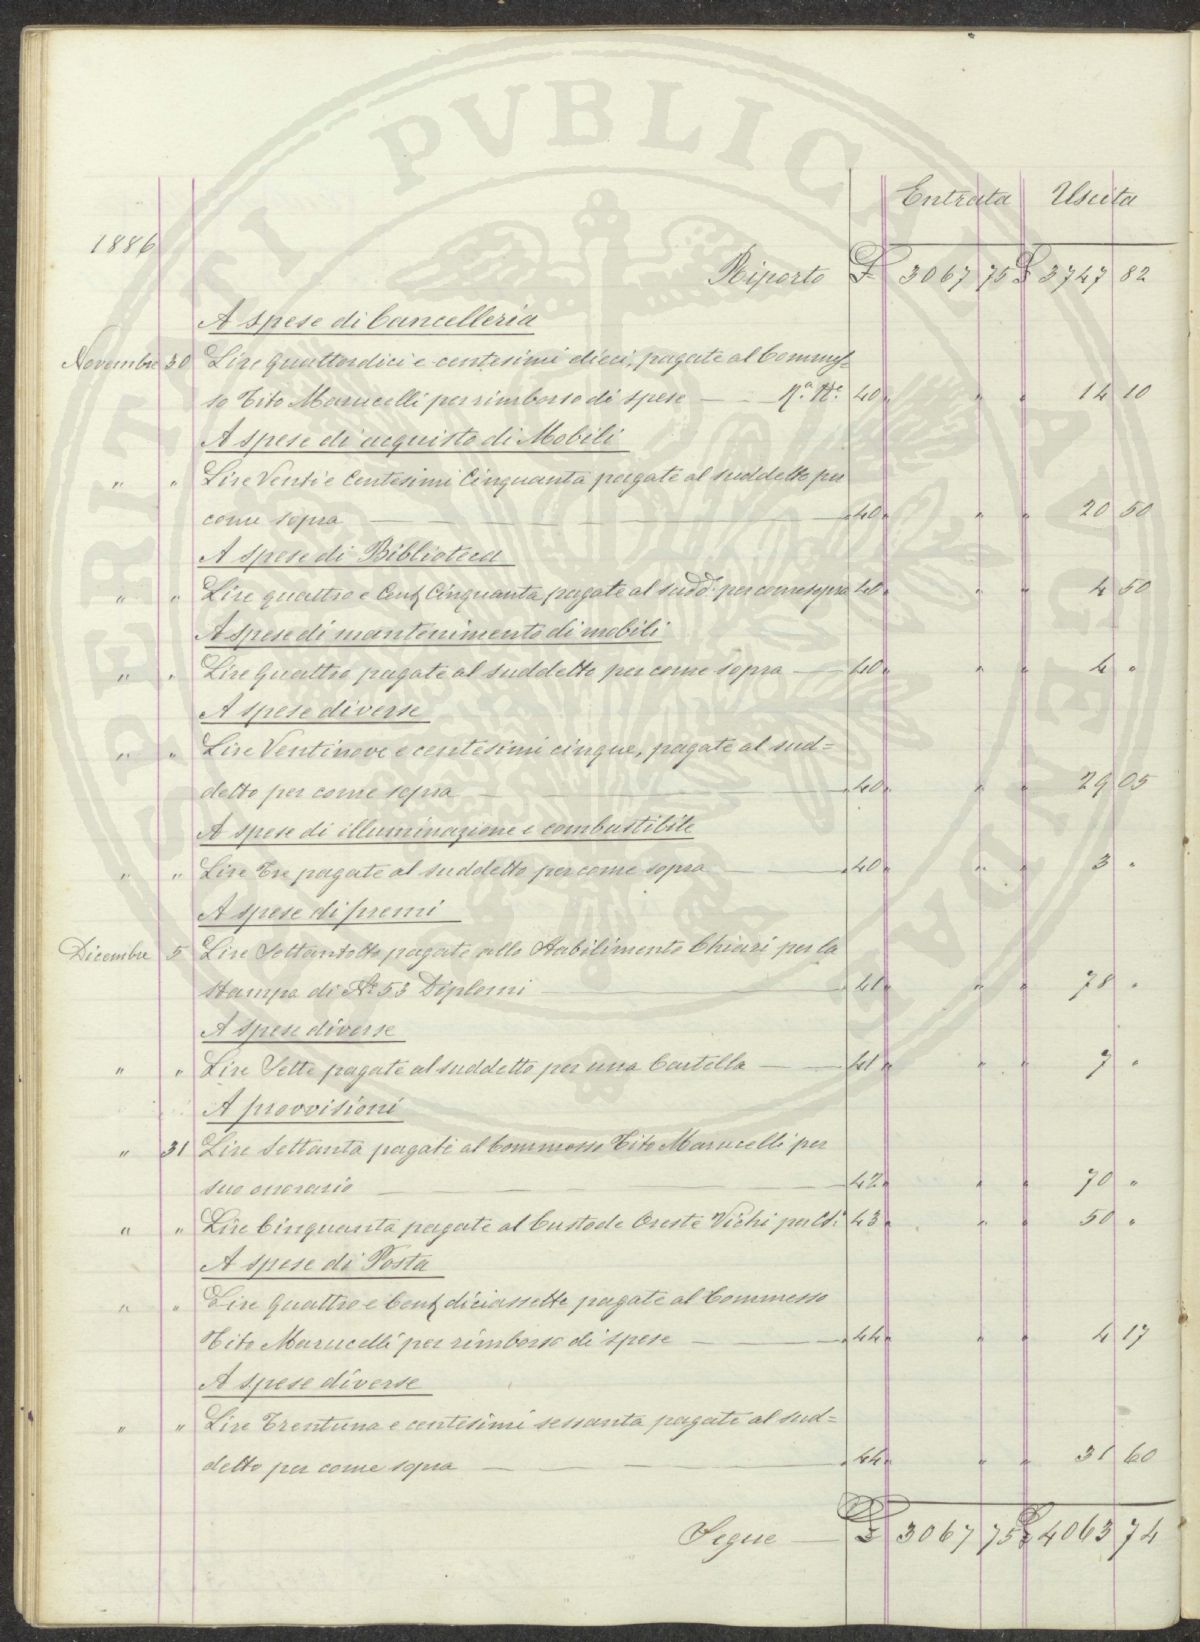 PERITI PVBLICE AVGENDA
Entrata Uscita
1886
Riporto £ 3067 75 £ 3747 82
A spese di Cancelleria
Novembre 30 Lire quattordici e centesimi dieci, pagate al Commes=
so Tito Marucelli per rimborso di spese — 40 " " " 14 10
A spese di acquisto di Mobili
" " Lire Venti e Centesimi Cinquanta pagate al suddetto per
come sopra — 40 " " " 20 50
A spese di Biblioteca
" " Lire quattro e Cent Cinquanta pagate al sudd° per come sopra 40 " " " 4 50
A spese di mantenimento di mobili
" " Lire Quattro pagate al suddetto per come sopra — 40 " " " 4 "
A spese diverse
" " Lire Ventinove e centesimi cinque, pagate al sud=
detto per come sopra — 40 " " " 29 05
A spese di illuminazione e combustibile
" " Lire Tre pagate al suddetto per come sopra — 40 " " " 3 "
A spese di premi
Dicembre 5 Lire Settantotto pagate allo Stabilimento Chiari per la
stampa di N° 53 Diplomi — 41 " " " 78 "
A spese diverse
" " Lire Sette pagate al suddetto per una Cartella — 41 " " " 7 "
A provvisioni
" 31 Lire Settanta pagate al Commesso Tito Marucelli per
suo onorario — 42 " " " 70 "
" " Lire Cinquanta pagate al Custode Oreste Vichi per Cs. 43 " " " 50 "
A spese di Posta
" " Lire Quattro e Cent diciassette pagate al Commesso
Tito Marucelli per rimborso di spese — 44 " " " 4 17
A spese diverse
" " Lire Trentuna e centesimi sessanta pagate al sud=
detto per come sopra — 44 " " " 31 60
Segue — £ 3067 75 £ 4063 74